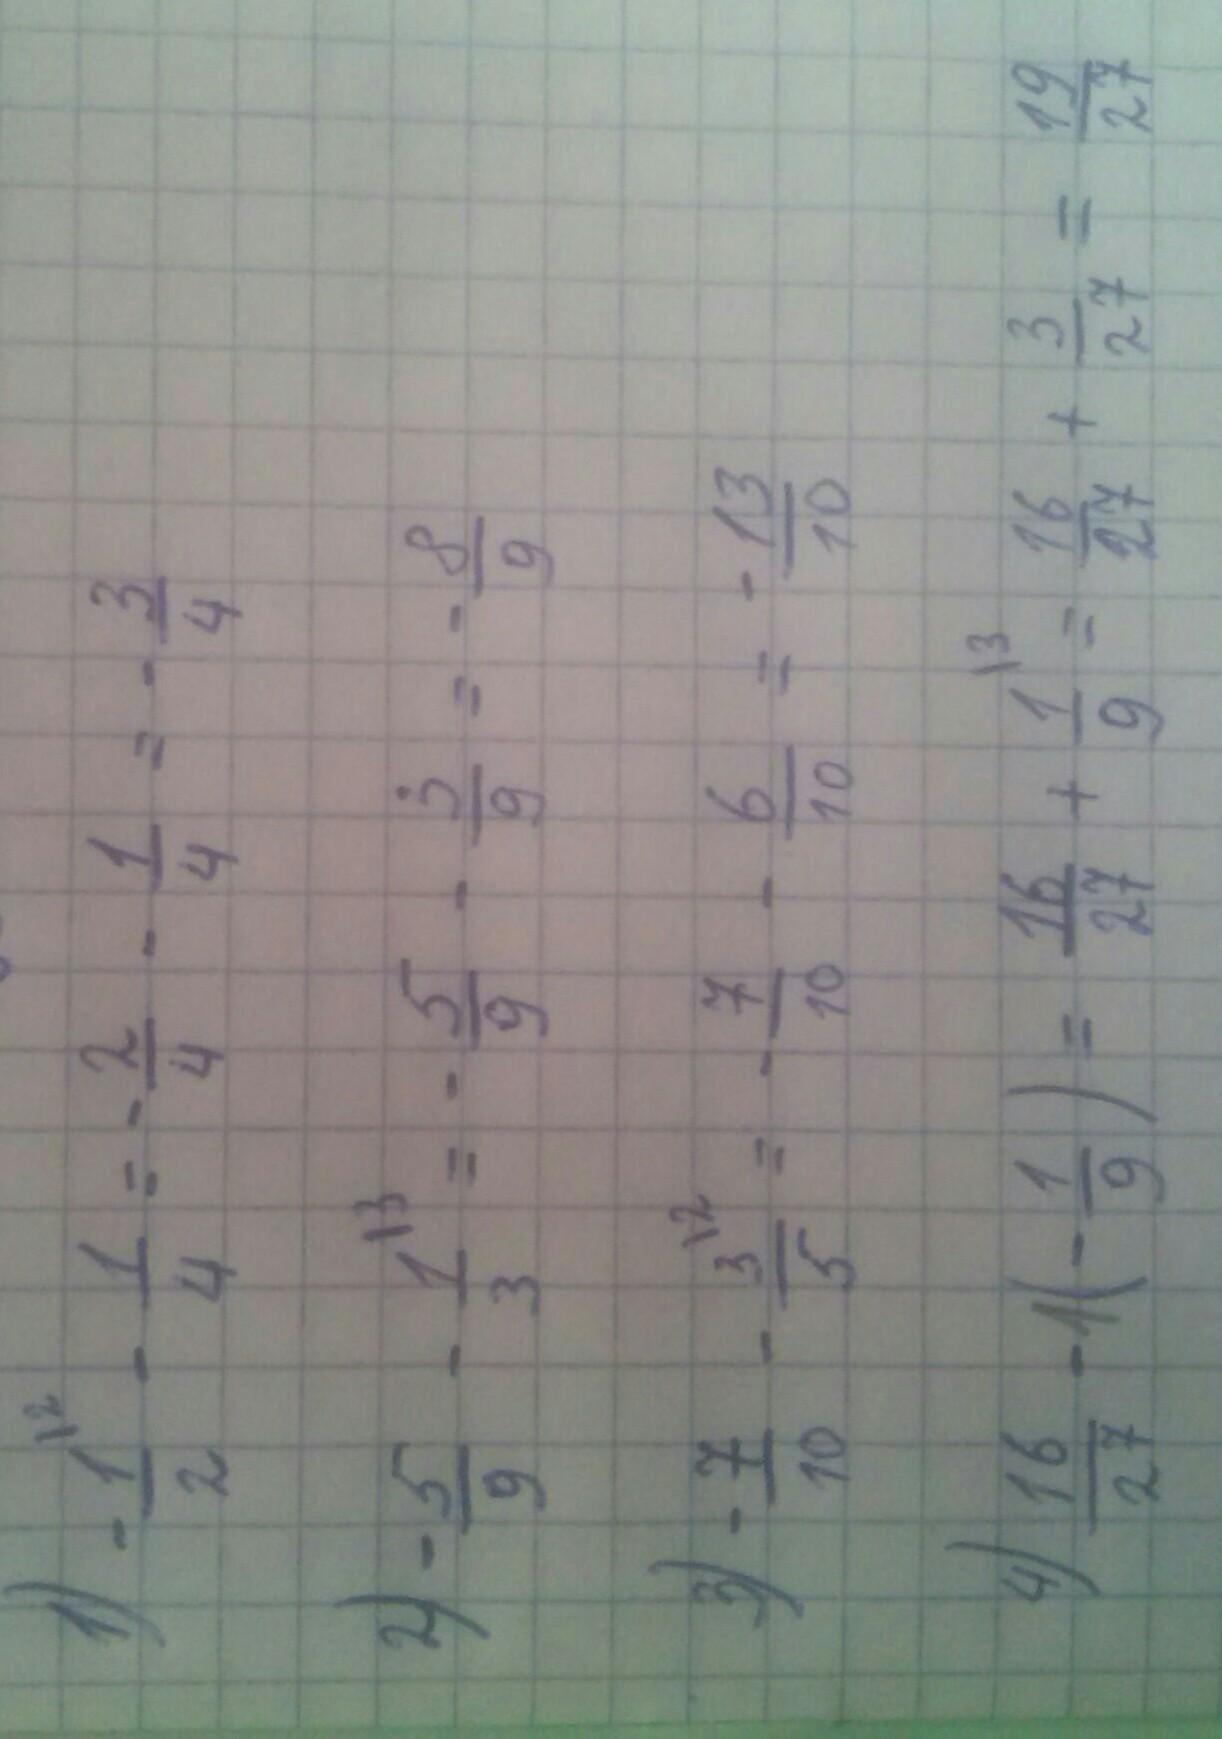 1) -1/2 \2 - 1/4 = -2/4 - 1/4 = -3/4
2) -5/9 - 1/3 \3 = -5/9 - 3/9 = -8/9
3) -7/10 - 3/5 \2 = -7/10 - 6/10 = -13/10
4) 16/27 -1(-1/9) = 16/27 + 1/9 \3 = 16/27 + 3/27 = 19/27